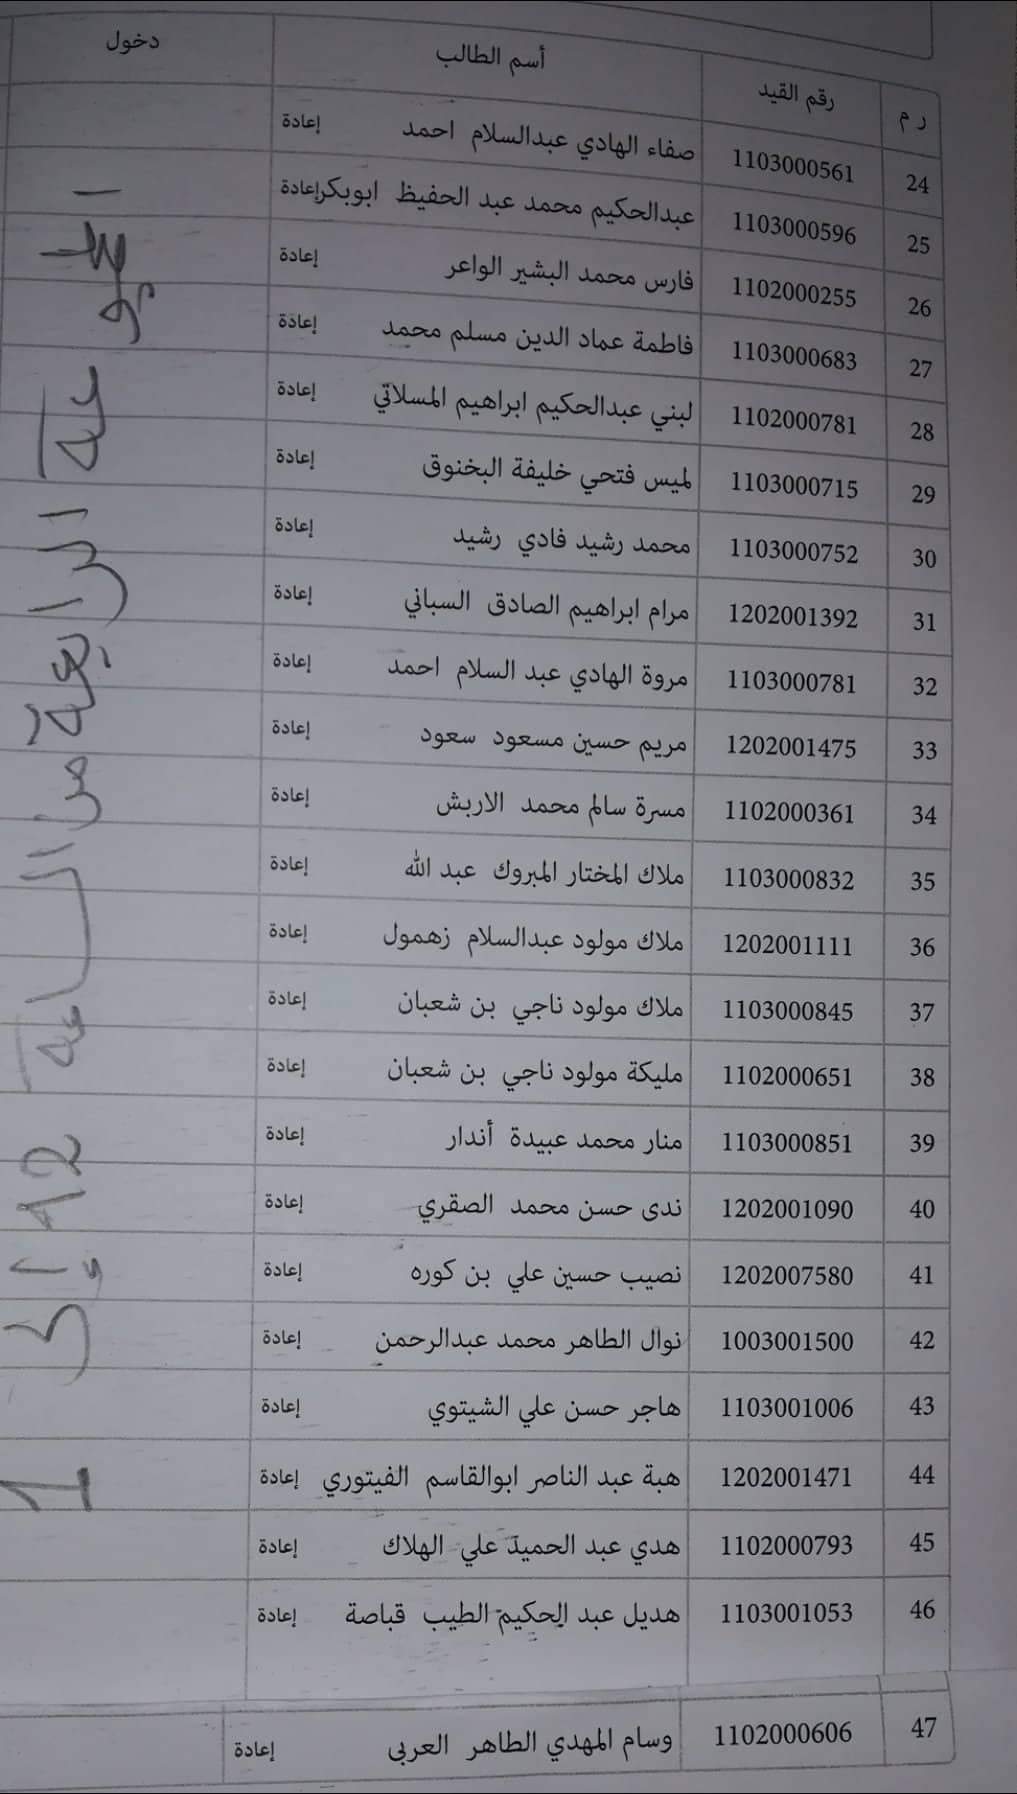 ر م رقم القيد أسم الطالب دخول
24 1103000561 صفاء الهادي عبدالسلام احمد إعادة
25 1103000596 عبدالحكيم محمد عبد الحفيظ ابوبكر إعادة
26 1102000255 فارس محمد البشير الواعر إعادة
27 1103000683 فاطمة عماد الدين مسلم محمد إعادة
28 1102000781 لبني عبدالحكيم ابراهيم المسلاتي إعادة
29 1103000715 لميس فتحي خليفة البخنوق إعادة
30 1103000752 محمد رشيد فادي رشيد إعادة
31 1202001392 مرام ابراهيم الصادق السباني إعادة
32 1103000781 مروة الهادي عبد السلام احمد إعادة
33 1202001475 مريم حسين مسعود سعود إعادة
34 1102000361 مسرة سالم محمد الاربش إعادة
35 1103000832 ملاك المختار المبروك عبد الله إعادة
36 1202001111 ملاك مولود عبدالسلام زهمول إعادة
37 1103000845 ملاك مولود ناجي بن شعبان إعادة
38 1102000651 مليكة مولود ناجي بن شعبان إعادة
39 1103000851 منار محمد عبيدة أندار إعادة
40 1202001090 ندى حسن محمد الصقري إعادة
41 1202007580 نصيب حسين علي بن كوره إعادة
42 1003001500 نوال الطاهر محمد عبدالرحمن إعادة
43 1103001006 هاجر حسن علي الشيتوي إعادة
44 1202001471 هبة عبد الناصر ابوالقاسم الفيتوري إعادة
45 1102000793 هدي عبد الحميد علي الهلاك إعادة
46 1103001053 هديل عبد الحكيم الطيب قباصة إعادة
47 1102000606 وسام المهدي الطاهر العربى إعادة
المجموعة الرابعة من الساعة 12